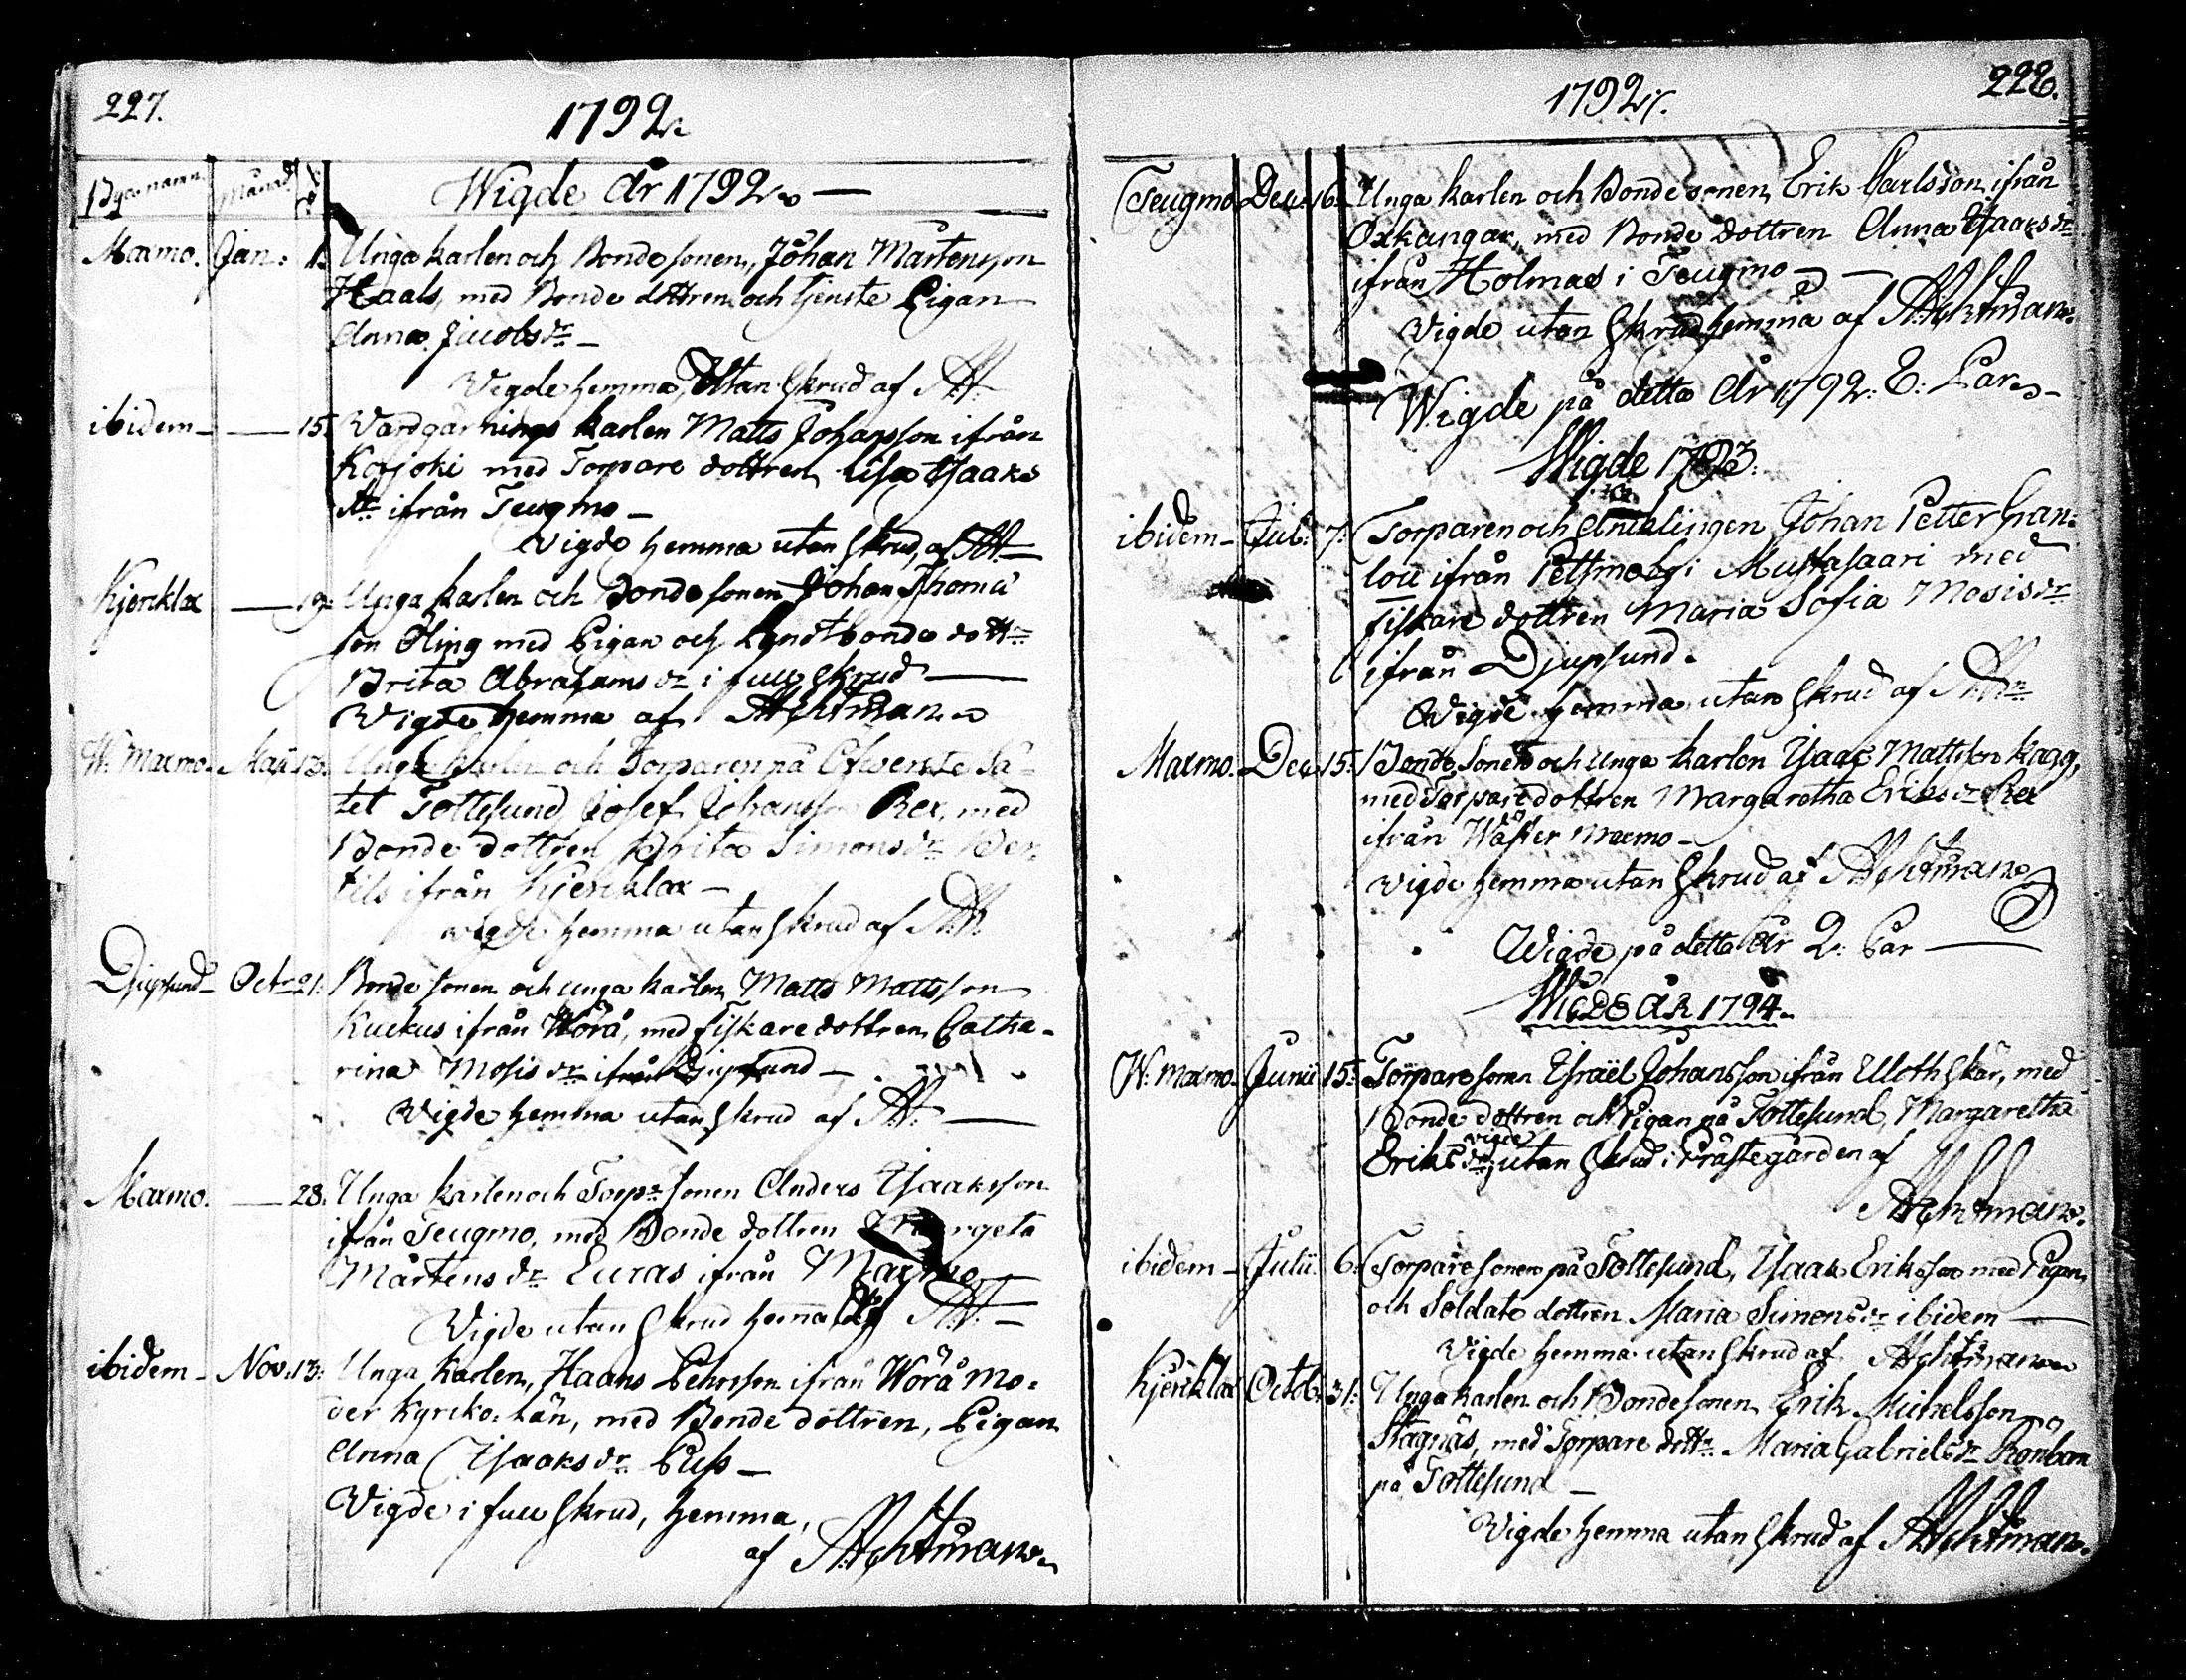 227.
1792.
Byanamn. Månad
Wigde År 1792. —
Maxmo. Jan: 1. Unga karlen och Bonde sonen, Johan Mårtensson
Haals, med Bonde dottren och tjenste Pigan
Anna Jacobsdr —
Vigde hemma, Utan Skrud af AA.
ibidem — — 15. Vardgärnings karlen Matts Johansson ifrån
Kosjoki med Torpare dottren Lisa Isaaks
dr ifrån Teugmo —
Vigde hemma utan Skrud, af AA. —
Kjerklax — 19. Unga karlen och Bonde sonen Johan Thomæ
son Öling med Pigan och Landtbonde dottr
Brita Abrahamsdr i full Skrud —
Vigde hemma af AAchtman.
W. Maxmo. Maji 13. Unga karlen och Torparen på Öfwerste Sä-
tet Tottesund Josef Johansson Rex, med
Bonde dottren Brita Simonsdr Ber-
tils ifrån Kjerklax —
vigde hemma utan Skrud af AA.
Djupsund — Octr 21. Bonde sonen och unga karlen, Matts Mattsson
Kuckus ifrån Wörå, med fiskare dottren, Catha-
rina Mosisdr ifrån Djupsund —
Vigde hemma utan Skrud af AA. —
Maxmo. — 28. Unga karlen och Torpr sonen Anders Isaaksson
ifrån Teugmo, med Bonde dottren Margeta
Mårtensdr Euras ifrån Maxmo
Vigde utan Skrud hemma af AA. —
ibidem — Nov. 13. Unga karlen, Haans Pehrsson ifrån Wörå Mo-
der Kyrko-län, med Bonde dottren, Pigan
Anna Isaaksdr Puss —
Vigde i full Skrud, hemma,
af AAchtman.
1792. 228.
Teugmo Dec. 16. Unga karlen och Bonde sonen, Erik Carlsson, ifrån
Oxkangar, med Bonde dottren Anna Isaaksdr
ifrån Holmas i Teugmo — —
Vigde utan Skrud hemma af AAchtman.
Wigde på detta År 1792. 8: Par. —
Wigde 1793.
ibidem — Jul: 7. Torparen och Enklingen Johan Petter Gran-
lou ifrån Petsmo by i Mustasaari med
fiskare dottren Maria Sofia Mosisdr
ifrån Djupsund.
Vigde hemma utan Skrud af AAn
Maxmo. Dec. 15. Bonde Sonen och unga karlen Isaac Mattsson Kagg,
med Torpare dottren Margaretha Eriksdr Rex
ifrån Wäster Maxmo —
vigde hemma utan Skrud af AAchtman
Wigde på detta År 2: Par —
WIGDE ÅR 1794.
W. Maxmo. Junii 15. Torpare sonen Israël Johansson ifrån Ulothskär, med
Bonde dottren och Pigan på Tottesund, Margaretha
Eriksdr, vigde utan Skrud i Prästegården af
AAchtman.
ibidem — Julii 6. Torpare sonen på Tottesund, Isaak Eriksson med Pigan
och Soldate dottren Maria Simonsdr ibidem —
Vigde hemma utan Skrud af AAchtman
Kjerklax Octob. 31. Unga karlen och Bondesonen, Erik Michelsson
Stagnäs, med Torpare dottr Maria Gabrielsdr Rönbom
på Tottesund —
Vigde hemma utan Skrud af AAchtman.